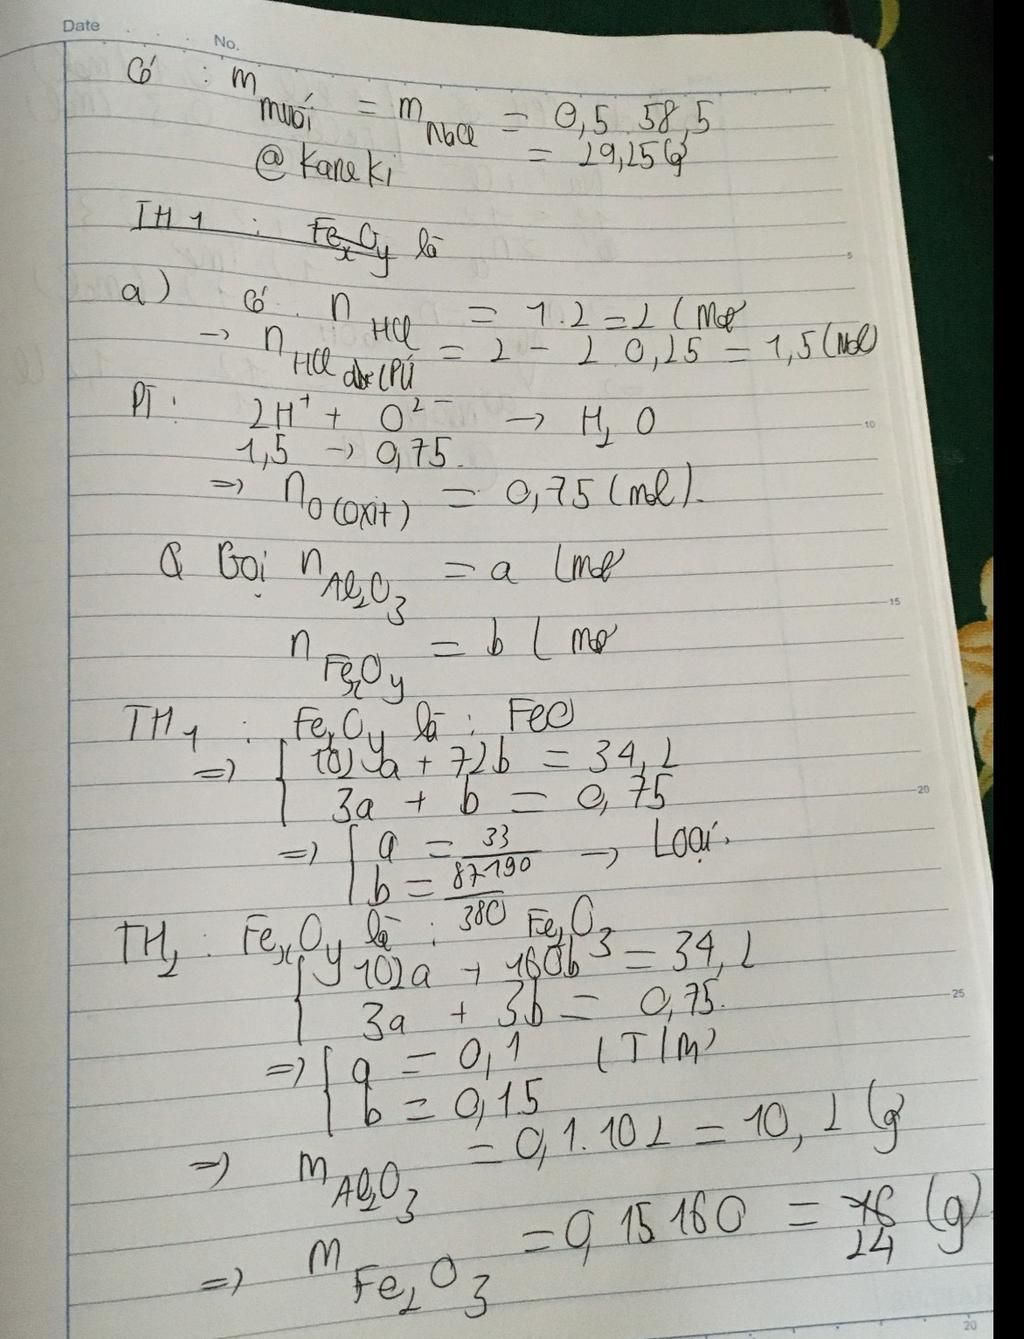 Date
No.
Có : m muối = m NaCl = 0,5 . 58,5
= 29,25 (g
@Kaneki
TH1 : FexOy là
a) Có . n HCl = 1.2 = 2 (mol
→ n HCl = 2 - 2 0,25 = 1,5 (mol)
PT : 2H⁺ + O²⁻ → H₂O
1,5 → 0,75.
=> n O (oxit) = 0,75 (mol).
Gọi n Al₂O₃ = a (mol
n FexOy = b (mol
TH1 : FexOy là : FeO
=> { 102a + 72b = 34,2
3a + b = 0,75
=> { a = 33/87 → Loại.
b = 190/380
TH2 : FexOy là : Fe₂O₃
{ 102a + 160b = 34,2
3a + 3b = 0,75.
=> { a = 0,1 (T/M)
b = 0,15
=> m Al₂O₃ = 0,1.102 = 10,2 (g
=> m Fe₂O₃ = 0,15 160 = 24 (g)
5
10
15
20
25
20